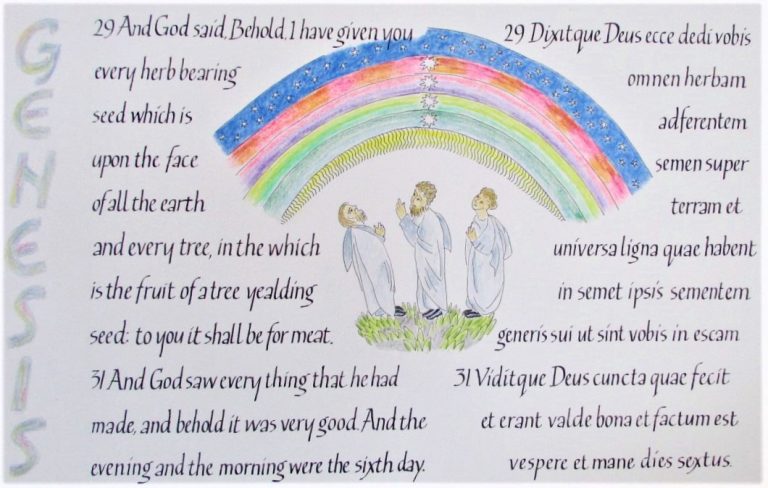 GENESIS
29 And God said, Behold, I have given you
every herb bearing
seed which is
upon the face
of all the earth
and every tree, in the which
is the fruit of a tree yealding
seed: to you it shall be for meat.
31 And God saw every thing that he had
made, and behold it was very good. And the
evening and the morning were the sixth day.
29 Dixitque Deus ecce dedi vobis
omnen herbam
adferentem
semen super
terram et
universa ligna quae habent
in semet ipsis sementem
generis sui ut sint vobis in escam
31 Viditque Deus cuncta quae fecit
et erant valde bona et factum est
vespere et mane dies sextus.